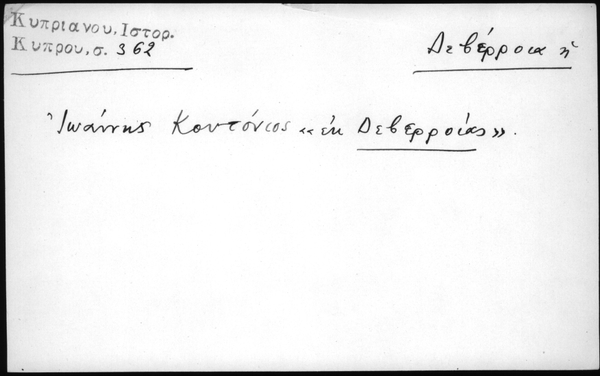 Κυπριανου, Ιστορ.
Κυπρου, σ. 362
Δεβέρροια ἡ
Ἰωάννης Κουτόνιος «ἐκ Δεβερροίας».